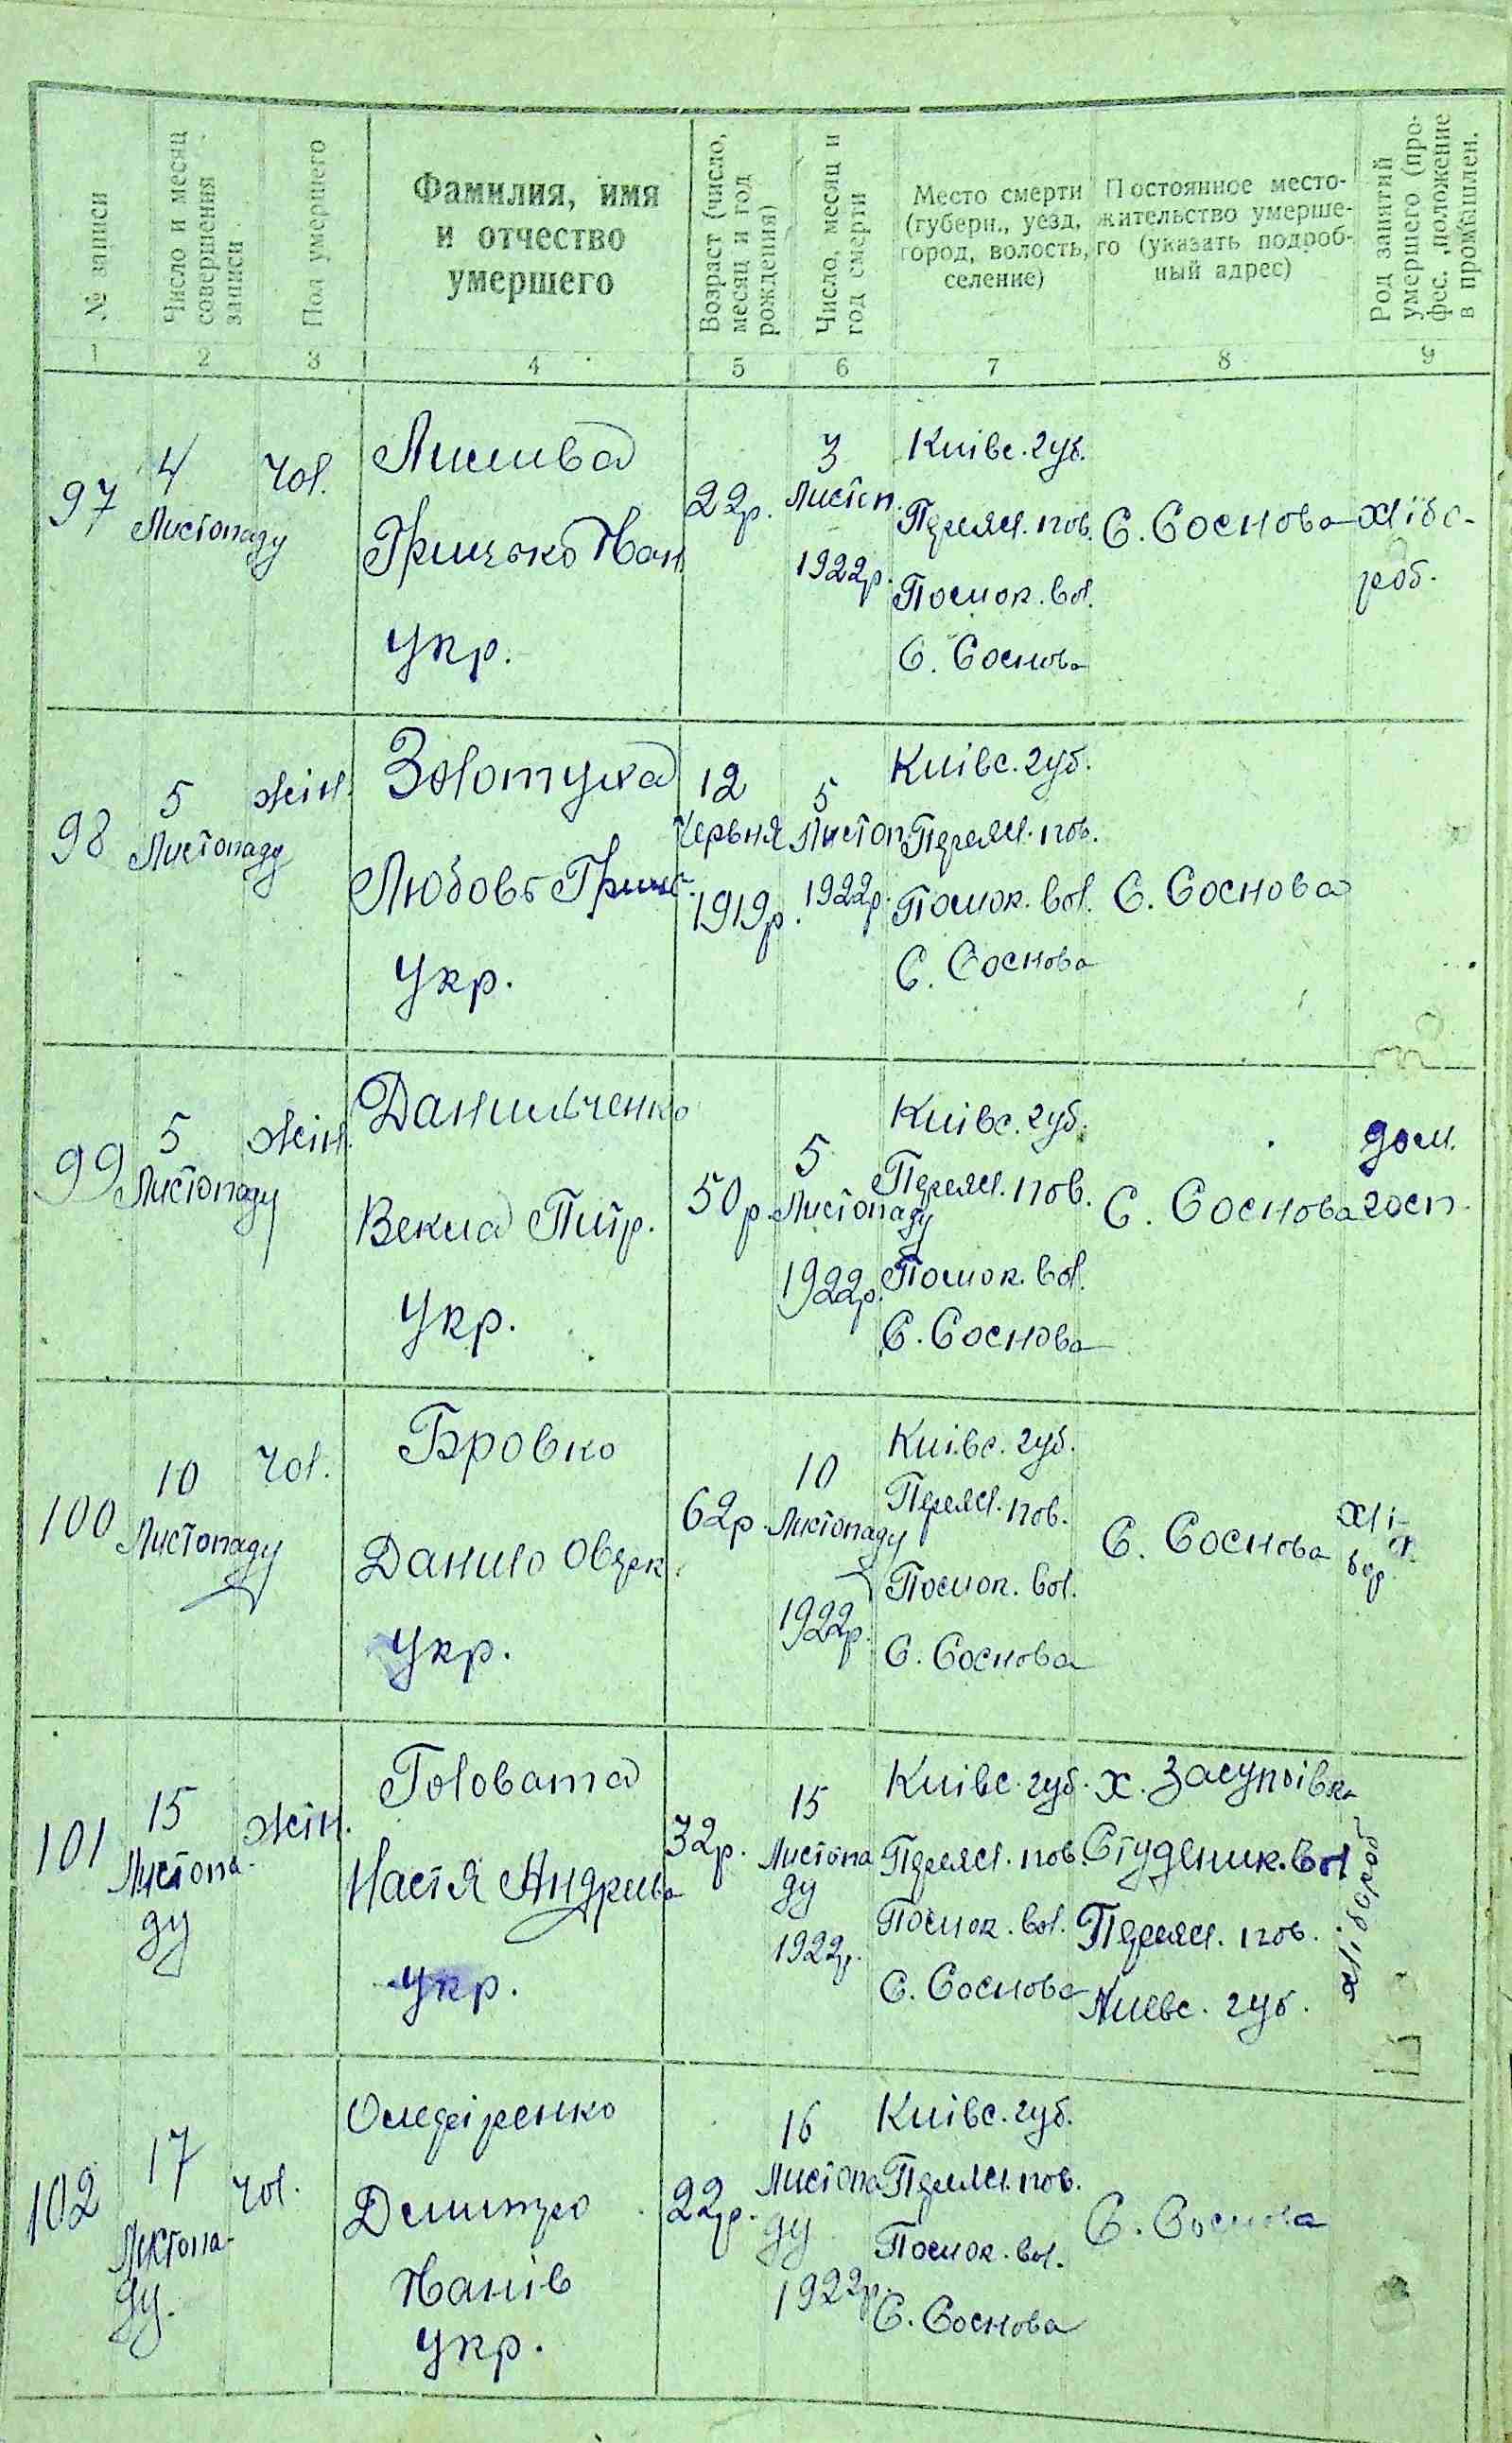 № записи
Число и месяц
совершения
записи
Пол умершего
Фамилия, имя
и отчество
умершего
Возраст (число,
месяц и год
рождения)
Число, месяц и
год смерти
Место смерти
(губерн., уезд,
город, волость,
селение)
Постоянное место-
жительство умерше-
го (указать подроб-
ный адрес)
Род занятий
умершего (про-
фес., положение
в промышлен.
1 2 3 4 5 6 7 8 9
97
4
Листопаду
Чол.
Грицько Пан.
Укр.
22р.
3
Листоп.
1922р.
Київс. губ.
Переясл. пов.
Помок. вол.
С. Соснова
С. Соснова
Хлібо-
роб.
98
5
Листопаду
жін.
Золотуха
Любовь Гриць.
Укр.
12
Червня
1919р.
5
Листоп.
1922р.
Київс. губ.
Переясл. пов.
Помок. вол.
С. Соснова
С. Соснова
99
5
Листопаду
жін.
Данильченко
Векла Питр.
Укр.
50р.
5
Листопаду
1922р.
Київс. губ.
Переясл. пов.
Помок. вол.
С. Соснова
С. Соснова
дом.
госп.
100
10
Листопаду
Чол.
Бровко
Данило Овер.
Укр.
62р.
10
Листопаду
1922р.
Київс. губ.
Переясл. пов.
Помок. вол.
С. Соснова
С. Соснова
101
15
Листопа-
ду
жін.
Головата
Настя Андрієва
Укр.
32р.
15
Листопа
ду
1922р.
Київс. губ.
Переясл. пов.
Помок. вол.
С. Соснова
х. Засупоівка
Студеник. вол
Переясл. пов.
Киевс. губ.
хлібороб
102
17
Листопа-
ду.
Чол.
Олефіренко
Дмитро
Панів
Укр.
22р.
16
Листопа
ду
1922р.
Київс. губ.
Переясл. пов.
Помок. вол.
С. Соснова
С. Соснова